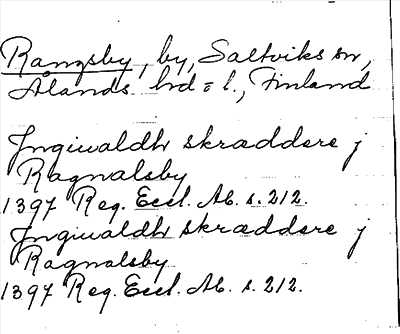 Rangsby, by, Saltviks sn,
Ålands hd o l., Finland
Ingiwaldh skræddere j
Ragnalsby
1397 Reg. Eccl. Ab. s. 212.
Ingiwaldh skræddere j
Ragnalsby
1397 Reg. Eccl. Ab. s. 212.